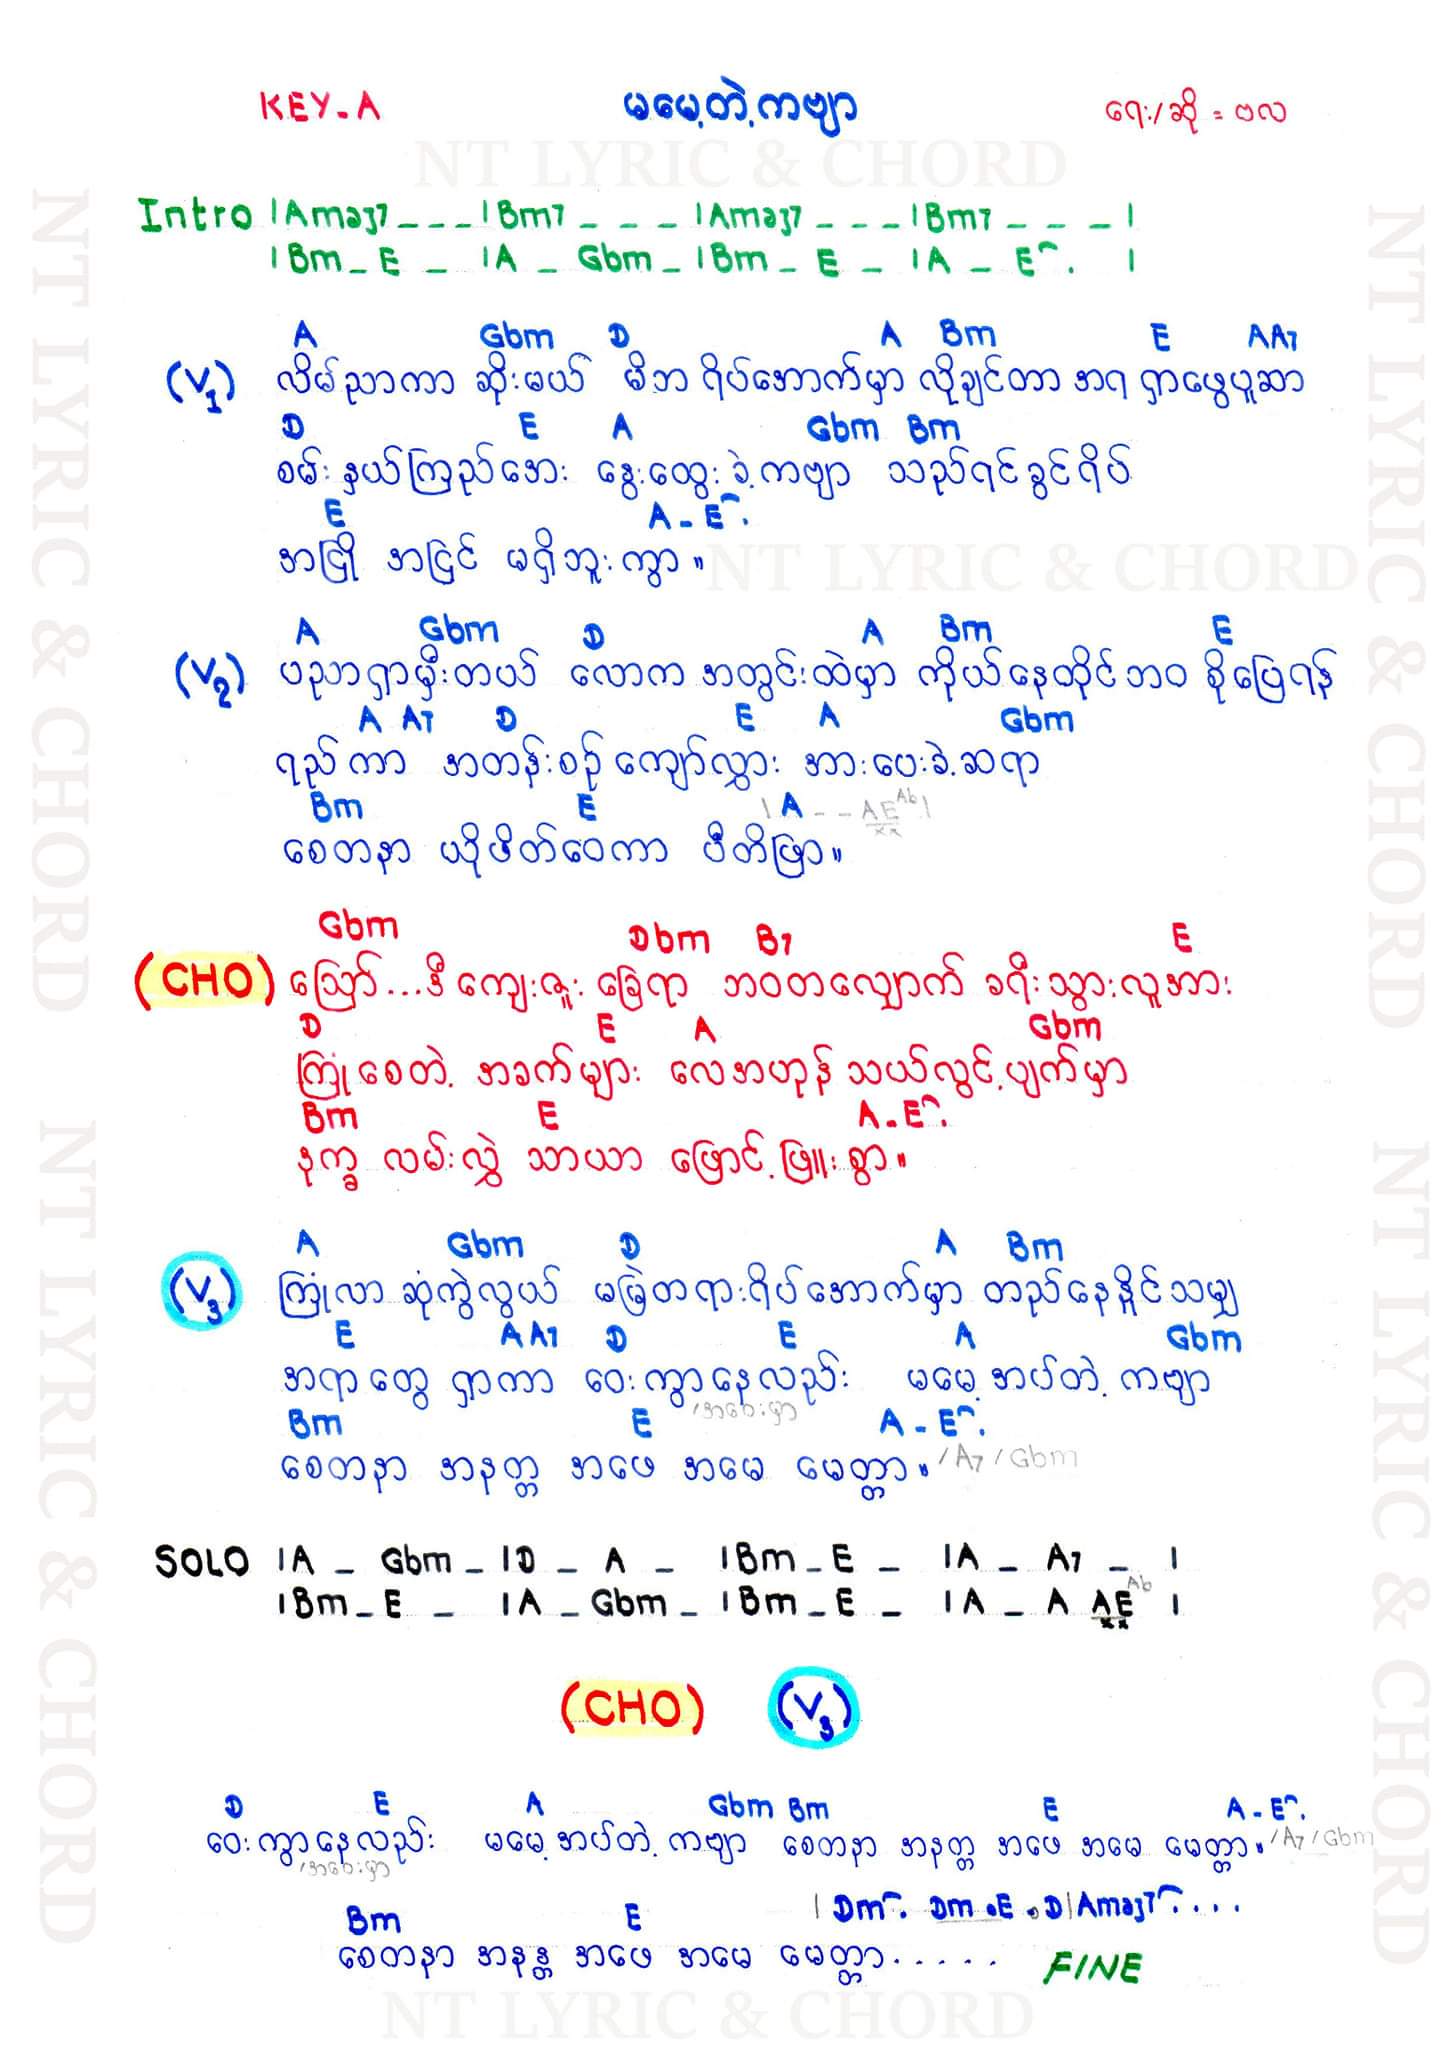 KEY-A မမေ့တဲ့ကဗျာ ရေး/ဆို = ဗလ
NT LYRIC & CHORD
Intro |Amaj7 _ _ _ |Bm7 _ _ _ |Amaj7 _ _ _ |Bm7 _ _ _ |
|Bm _ E _ |A _ Gbm _ |Bm _ E _ |A _ E . |
A Gbm D A Bm E A A7
(V1) လိမ်ညာကာ ဆိုးမယ် မိဘ ရိပ်အောက်မှာ လိုချင်တာ အရ ရှာဖွေပူဆာ
D E A Gbm Bm
စမ်းနယ်ကြည်အေး နွေးထွေးခဲ့ကဗျာ သည်ရင်ခွင်ရိပ်
E A - E .
အငြို အငြင် မရှိဘူးကွာ။
NT LYRIC & CHORD
A Gbm D A Bm E
(V2) ပညာရှာမှီးတယ် လောက အတွင်းထဲမှာ ကိုယ်နေထိုင်ဘဝ စိုပြေရန်
A A7 D E A Gbm
ရည်ကာ အတန်းစဉ်ကျော်လွှား အားပေးခဲ့ဆရာ
Bm E |A - - AE Ab|
စေတနာ ယိုဖိတ်ဝေကာ ပီတိဖြာ။
Gbm Dbm B7 E
(CHO) သြော်...ဒီကျေးဇူး ခြေရာ ဘဝတလျှောက် ခရီးသွားလူအား
D E A Gbm
ကြုံစေတဲ့ အခက်များ လေအဟုန် သယ်လွင့်ပျက်မှာ
Bm E A - E .
နက္ခ လမ်းလွှဲ သာယာ ဖြောင့်ဖြူးစွာ။
A Gbm D A Bm
(V3) ကြုံလာ ဆုံကွဲလွယ် မမြဲတရားရိပ်အောက်မှာ တည်နေနိူင်သမျှ
E A A7 D E A Gbm
အရာတွေ ရှာကာ ဝေးကွာနေလည်း မမေ့အပ်တဲ့ ကဗျာ
/အဝေးမှာ
Bm E A - E .
စေတနာ အနတ္တ အဖေ အမေ မေတ္တာ။ /A7/Gbm
SOLO |A _ Gbm _ |D _ A _ |Bm _ E _ |A _ A7 _ |
|Bm _ E _ |A _ Gbm _ |Bm _ E _ |A _ A AE Ab |
(CHO) (V3)
D E A Gbm Bm E A - E .
ဝေးကွာနေလည်း မမေ့အပ်တဲ့ ကဗျာ စေတနာ အနတ္တ အဖေ အမေ မေတ္တာ။ /A7/Gbm
/အဝေးမှာ
Bm E |Dm . Dm .E .D|Amaj7 . . . .
စေတနာ အနန္တ အဖေ အမေ မေတ္တာ...... FINE
NT LYRIC & CHORD
NT LYRIC & CHORD
NT LYRIC & CHORD
NT LYRIC & CHORD
NT LYRIC & CHORD